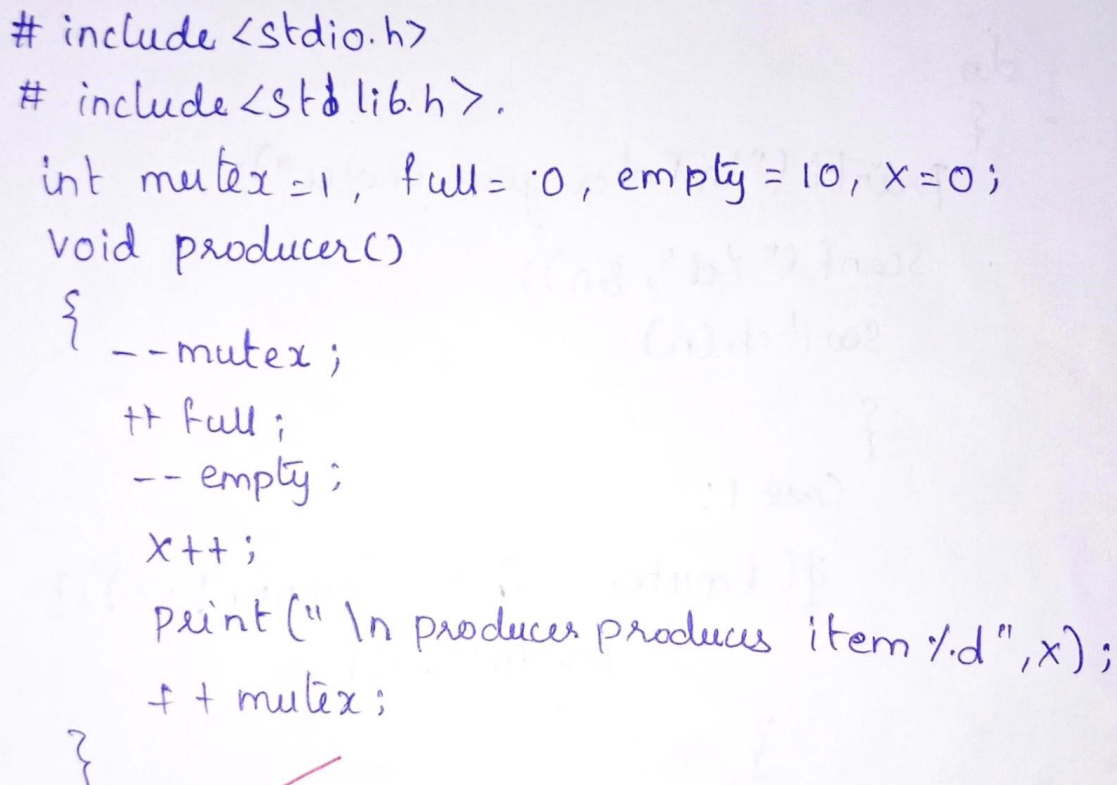 # include <stdio.h>
# include <stdlib.h>.
int mutex = 1, full = 0, empty = 10, x = 0;
void producer()
{
--mutex;
++ full;
-- empty;
x++;
print ("\n producer produces item %d", x);
++ mutex;
}